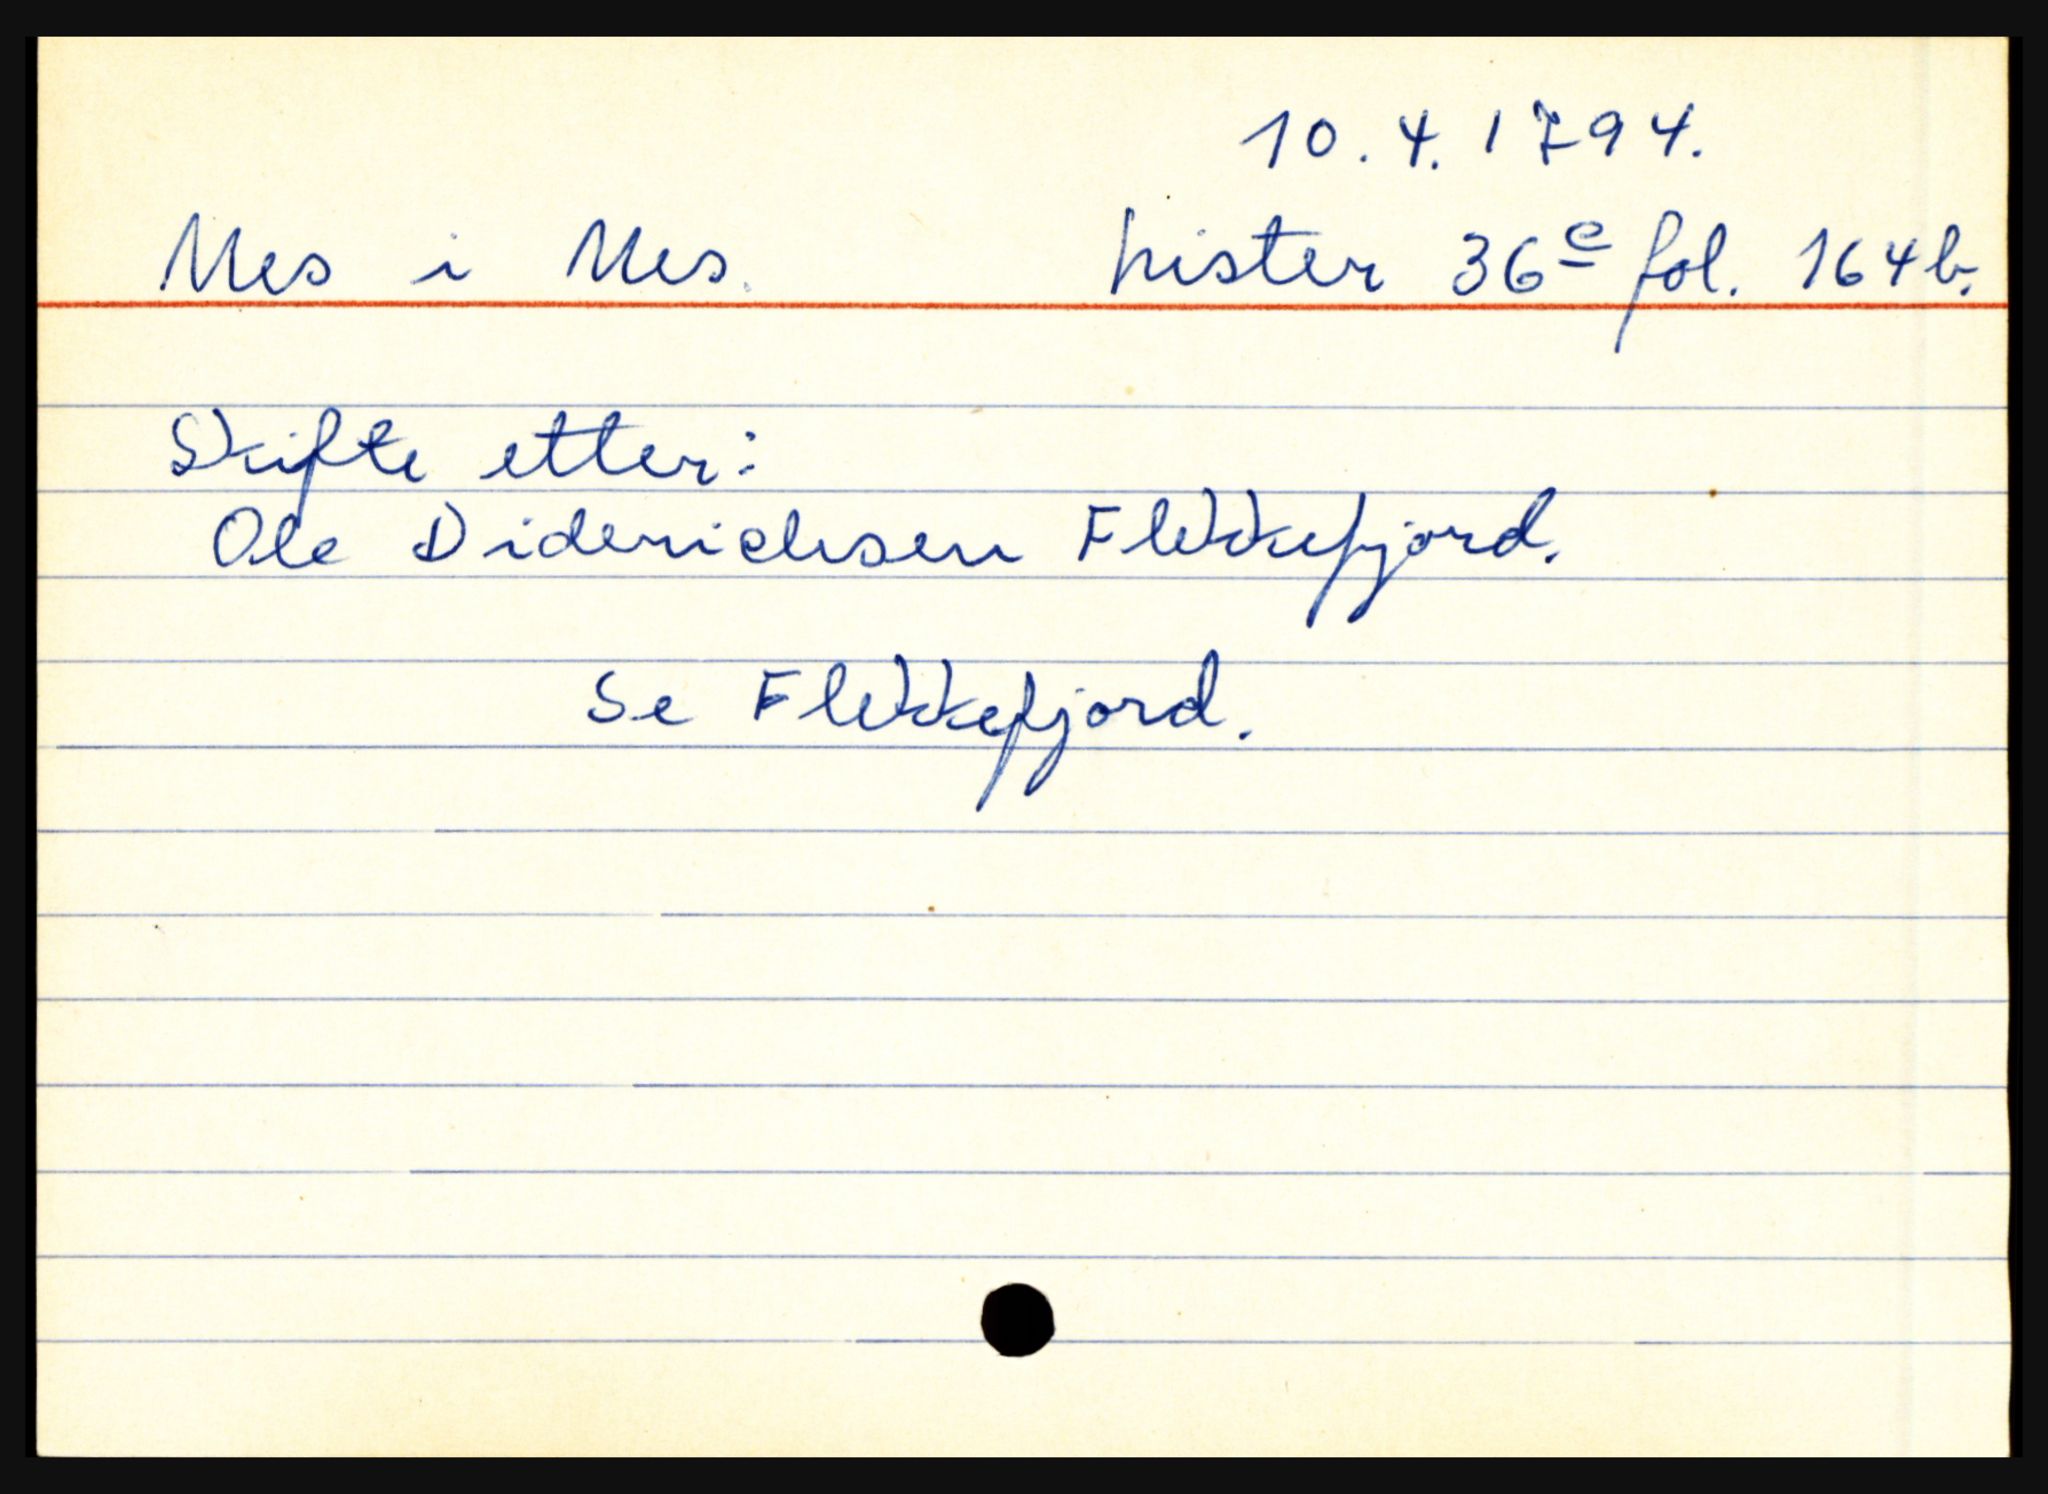 10.4.1794.
Nes i Nes. Lister 36e fol. 164b.
Skifte etter:
Ole Diderichsen Flekkefjord.
Se Flekkefjord.